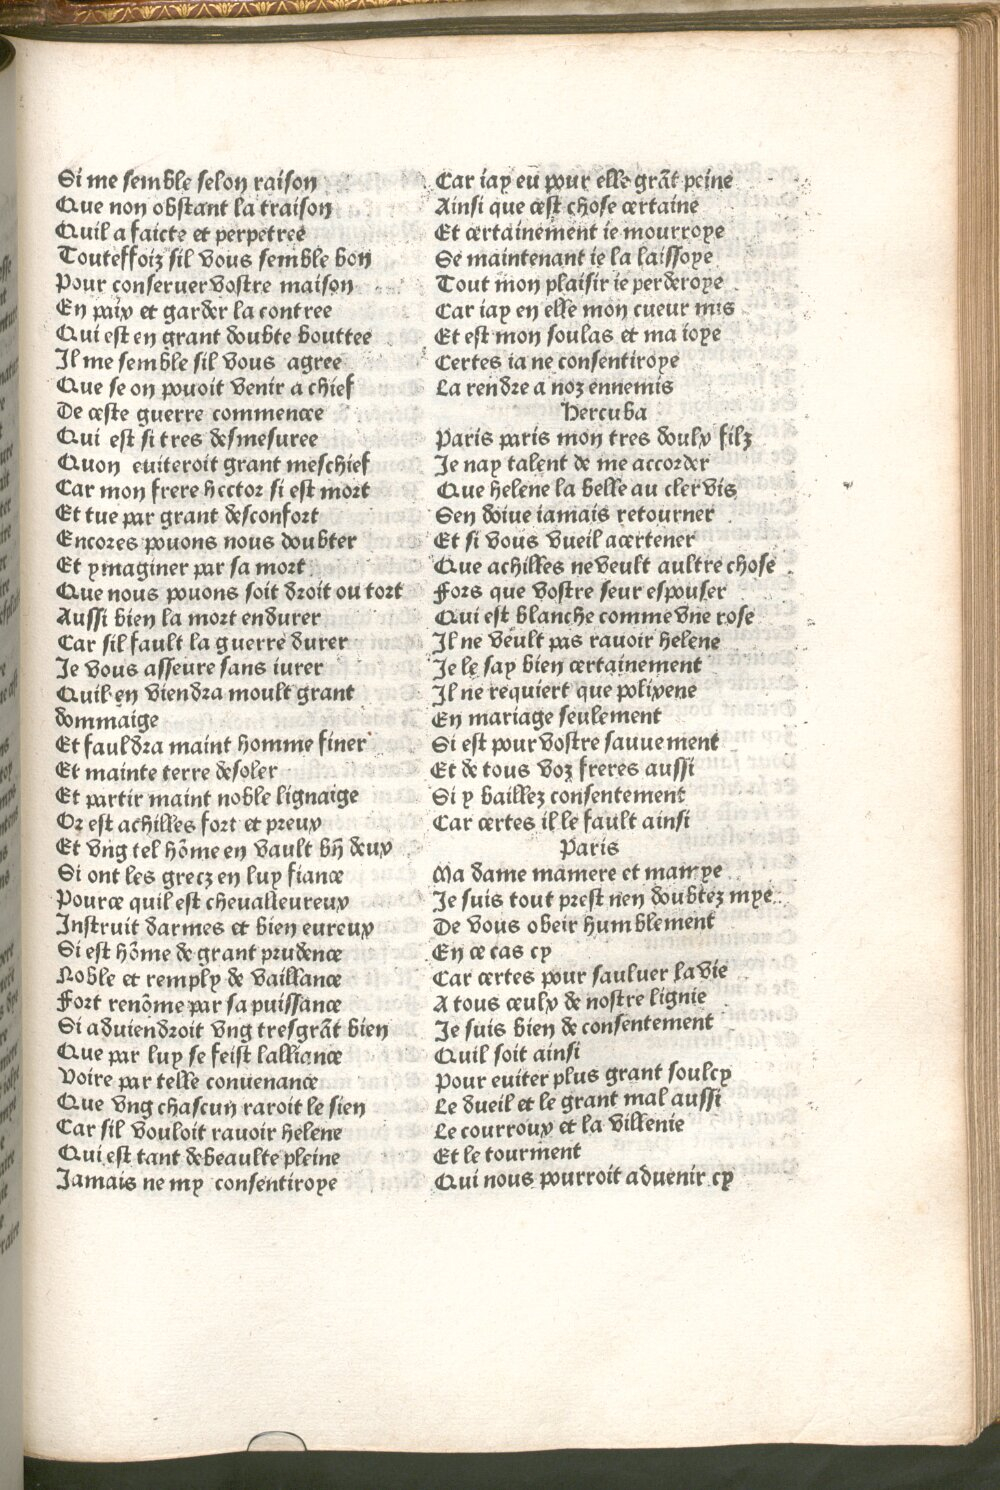 Si me semble selon raison
Que non obstant la traison
Quil a faicte et perpetree
Touteffoiz sil vous semble bon
Pour conseruer vostre maison
En paix et garder la contree
Qui est en grant doubte bouttee
Il me semble sil vous agree
Que se on pouoit venir a chief
De ceste guerre commencee
Qui est si tres desmesuree
Quon euiteroit grant meschief
Car mon frere hector si est mort
Et tue par grant desconfort
Encores pouons nous doubter
Et ymaginer par sa mort
Que nous pouons soit droit ou tort
Aussi bien la mort endurer
Car sil fault la guerre durer
Je vous asseure sans iurer
Quil en viendra moult grant
dommaige
Et fauldra maint homme finer
Et mainte terre desoler
Et partir maint noble lignaige
Or est achilles fort et preux
Et vng tel hõme en vault bñ deux
Si ont les grecz en luy fiance
Pource quil est cheualleureux
Instruit darmes et bien eureux
Si est hõme de grant prudence
Noble et remply de vaillance
Fort renõme par sa puissance
Si aduiendroit vng tresgrãt bien
Que par luy se feist lalliance
Voire par telle conuenance
Que vng chascun raroit le sien
Car sil vouloit rauoir helene
Qui est tant de beaulte pleine
Jamais ne my consentiroye
Car iay eu pour elle grãt peine
Ainsi que cest chose certaine
Et certainement ie mourroye
Se maintenant ie la laissoye
Tout mon plaisir ie perderoye
Car iay en elle mon cueur mis
Et est mon soulas et ma ioye
Certes ia ne consentiroye
La rendre a noz ennemis
Hercuba
Paris paris mon tres doulx filz
Je nay talent de me accorder
Que helene la belle au cler vis
Sen doiue iamais retourner
Et si vous vueil acertener
Que achilles ne veult aultre chose
Fors que vostre seur espouser
Qui est blanche comme vne rose
Il ne veult pas rauoir helene
Je le say bien certainement
Il ne requiert que polixene
En mariage seulement
Si est pour vostre sauuement
Et de tous voz freres aussi
Si y baillez consentement
Car certes il le fault ainsi
Paris
Ma dame mamere et mamye
Je suis tout prest nen doubtez mye
De vous obeir humblement
En ce cas cy
Car certes pour sauluer la vie
A tous ceulx de nostre lignie
Je suis bien de consentement
Quil soit ainsi
Pour euiter plus grant soulcy
Le dueil et le grant mal aussi
Le courroux et la villenie
Et le tourment
Qui nous pourroit aduenir cy